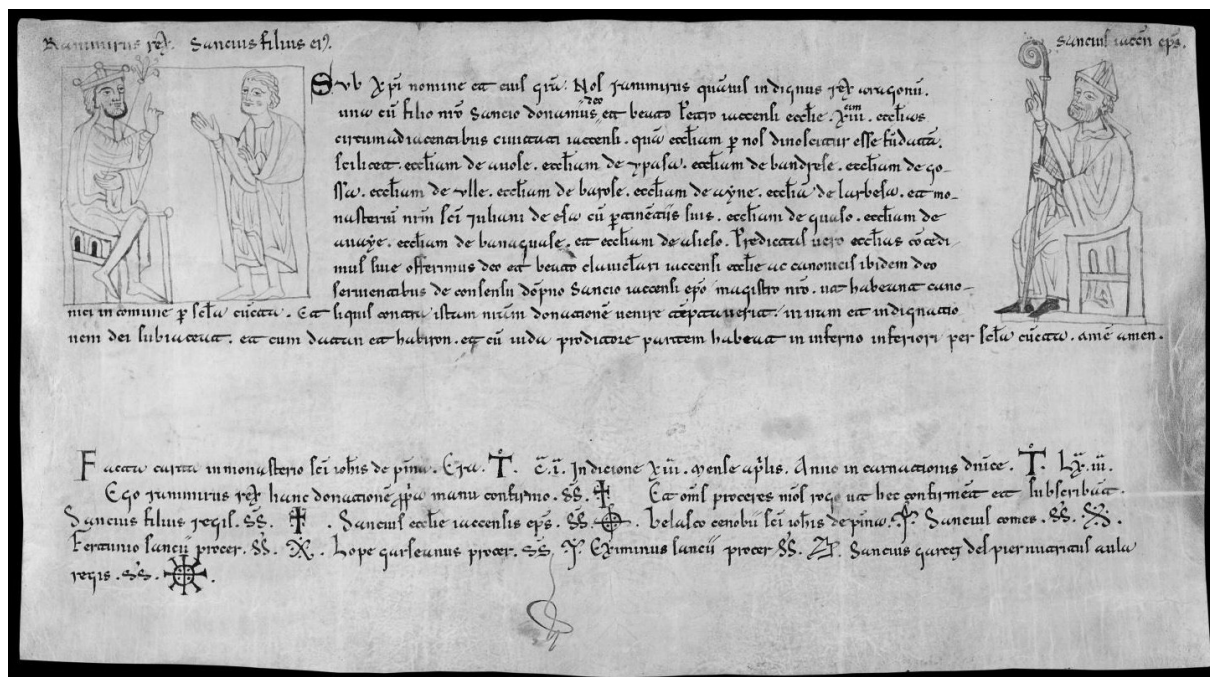 Ranimirus rex. Sancius filius ei9. Sancius iaccēn ep̄s.
Sub Xpī nomine et eius gr̄a. Nos ranimirus quāuis indignus rex aragonū.
una cū filio nr̄o Sancio donamus deo et beato Petro iaccensi ecclīe. Xiii.cim ecclīas
circumadiacentibus ciuitati iaccensi. quā ecclīam p̄ nos dinoscitur esse fūdatā.
scilicet. ecclīam de auose. ecclīam de ypasa. ecclīam de bandrese. ecclīam de go-
ssa. ecclīam de ulle. ecclīam de barose. ecclīam de ayne. ecclīā de larbesa. et mo-
nasteriū nrm̄ sc̄i iuliani de esa cū p̄tinētiis suis. ecclīam de guaso. ecclīam de
auaye. ecclīam de banaguase. et ecclīam de asieso. Predictas uero ecclīas cōcedi-
mus siue offerimus deo et beato clauicl̄ari iaccensi ecclīe ac canonicis ibidem deo
seruientibus de consensu dōpno Sancio iaccensi ep̄o magistro nr̄o. ut habeant cano-
nici in comune p̄ sc̄la cūcta. Et siquis contra istam nrām donationē uenire tēptauerit. in iram et indignatio
nem dei subiaceat. et cum datan et habiron. et cū iuda proditore partem habeat in inferno inferiori per sc̄la cūcta. amē amen.
Facta carta in monasterio sc̄i ioh̄is de pīna. Era. T. C̄.ī. Indicione Xiii. mense ap̄lis. Anno incarnacionis dn̄ice. T. LX.iii.
Ego ranimirus rex hanc donationē p̄p̄a manu confirmo. SS. Et om̄s proceres mōs rogo ut hec confirmēt et subscribāt.
Sancius filius regis. SS. Sancius ecclīe iaccensis ep̄s. SS. belasco cenobii sc̄i ioh̄is de pīna. Sancius comes. SS.
Fertunio sancii procer. SS. Lope garseanus procer. SS. Eximinus sancii procer SS. Sancius garcez del pier nutritus aula
regis. SS.